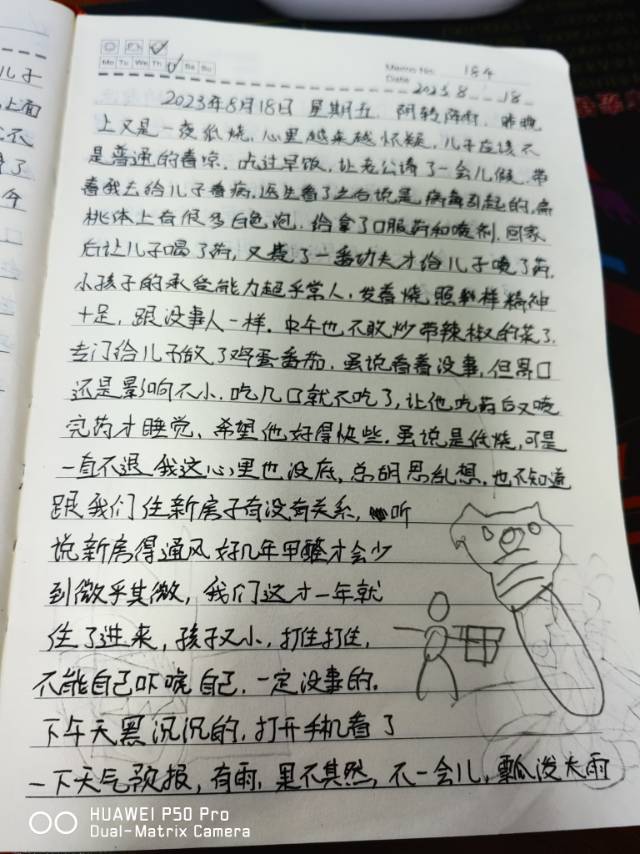 Mo Tu We Th Sa Su
Memo No. 184
Date 2023. 8. 18
2023年8月18日 星期五 阴转阵雨 昨晚
上又是一夜低烧,心里越来越怀疑,儿子应该不
是普通的着凉,吃过早饭,让老公请了一会儿假,带
着我去给儿子看病,医生看了之后说是病毒引起的,扁
桃体上有很多白色泡,给拿了口服药和喷剂,回家
后让儿子喝了药,又费了一番功夫才给儿子喷了药,
小孩子的承受能力超乎常人,发着烧照样精神
十足,跟没事人一样.中午也不敢炒带辣椒的菜了,
专门给儿子做了鸡蛋番茄,虽说看着没事,但胃口
还是影响不小,吃几口就不吃了,让他吃药后又喷
完药才睡觉、希望他好得快些.虽说是低烧,可是
一直不退我这心里也没底,总胡思乱想,也不知道
跟我们住新房子有没有关系,听
说新房得通风好几年甲醛才会少
到微乎其微,我们这才一年就
住了进来,孩子又小,打住打住,
不能自己吓唬自己,一定没事的.
下午天黑沉沉的,打开手机看了
一下天气预报,有雨,果不其然,不一会儿,瓢泼大雨
儿子
上面
不
了
今
HUAWEI P50 Pro
Dual-Matrix Camera